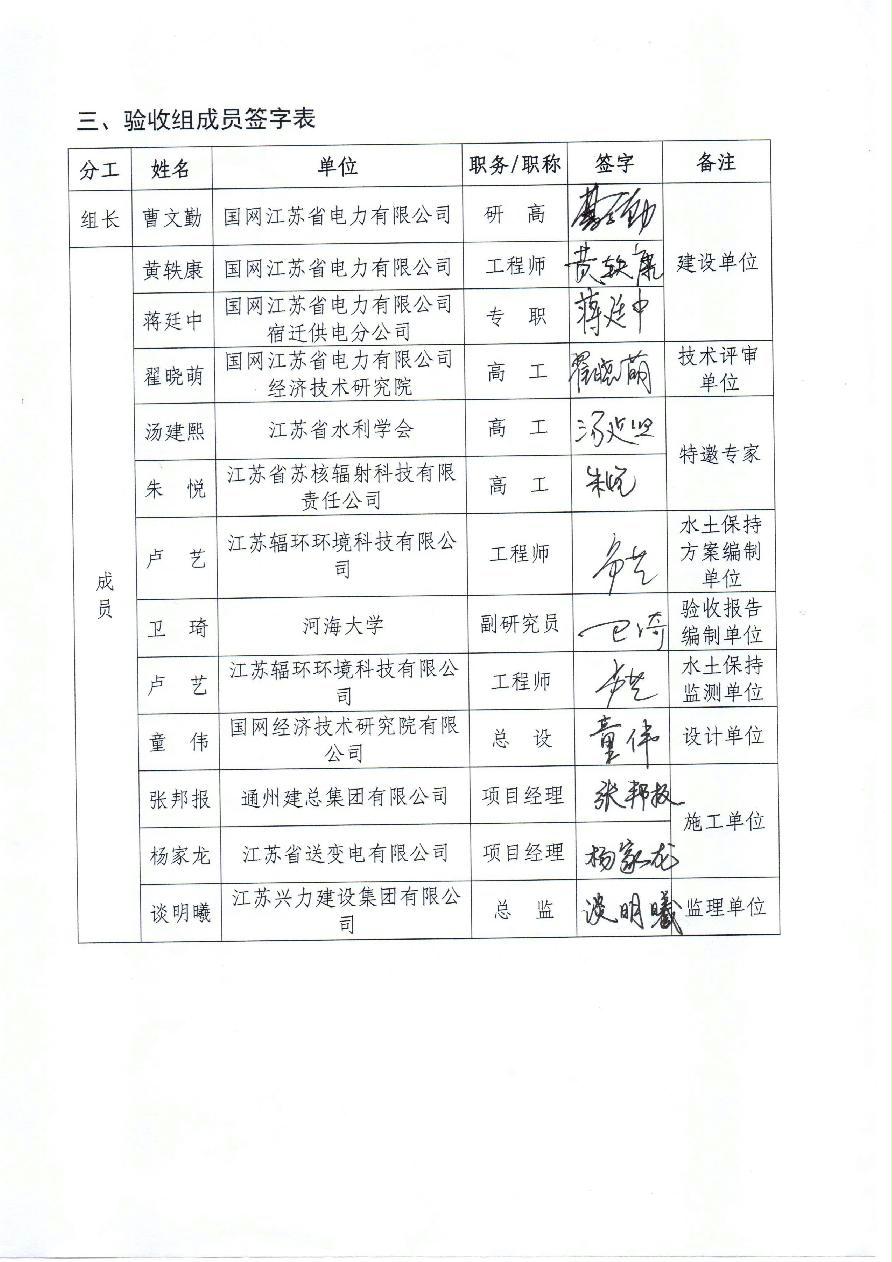 三、验收组成员签字表
分工 姓名 单位 职务/职称 签字 备注
组长 曹文勤 国网江苏省电力有限公司 研 高 建设单位
成员
黄轶康 国网江苏省电力有限公司 工程师 黄轶康
蒋廷中 国网江苏省电力有限公司
宿迁供电分公司 专 职 蒋廷中
翟晓萌 国网江苏省电力有限公司
经济技术研究院 高 工 翟晓萌 技术评审
单位
汤建熙 江苏省水利学会 高 工 特邀专家
朱 悦 江苏省苏核辐射科技有限
责任公司 高 工 朱悦
卢 艺 江苏辐环环境科技有限公
司 工程师 卢艺 水土保持
方案编制
单位
卫 琦 河海大学 副研究员 卫琦 验收报告
编制单位
卢 艺 江苏辐环环境科技有限公
司 工程师 卢艺 水土保持
监测单位
童 伟 国网经济技术研究院有限
公司 总 设 童伟 设计单位
张邦报 通州建总集团有限公司 项目经理 张邦报 施工单位
杨家龙 江苏省送变电有限公司 项目经理 杨家龙
谈明曦 江苏兴力建设集团有限公
司 总 监 谈明曦 监理单位